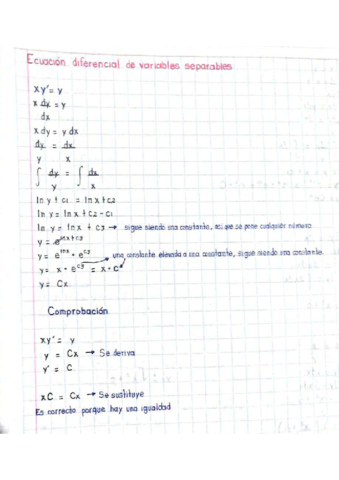 Ecuación diferencial de variables separables
xy' = y
x dx = y
dx
x dy = y dx
dx = dx
y x
∫ dy = ∫ dx
y x
ln y + c1 = ln x + c2
ln y = ln x + c2 - c1
ln y = ln x + c3 → sigue siendo una constante, así que se pone cualquier número
y = e^lnx+c3
y = e^lnx • e^c3 → una constante elevada a una constante, sigue siendo una constante.
y = x • e^c3 = x • c
y = Cx
Comprobación
xy' = y
y = Cx → Se deriva
y' = C
xC = Cx → Se sustituye
Es correcto porque hay una igualdad